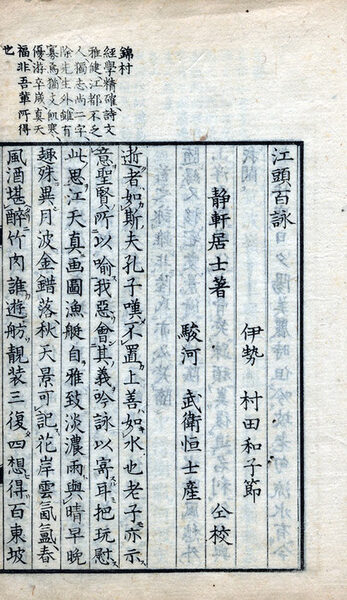 江頭百詠
伊勢 村田和子節
静軒居士著 仝校
駿河 武衛恒士産
逝者如斯夫孔子嘆不置上善如水也老子亦示
意聖賢所以喻我惡會其義吟詠以寓耳把玩慰
此思江天真画圖漁艇自雅致淡濃雨與晴早晚
趣殊異月波金錯落秋天景可記花岸雲氤氳春
風酒堪醉竹肉誰遊舫靚装三復四想得百東坡
錦村
經學精確詩文
雅健江都不乏
人獨志尚二字
除先生外雖有
寡焉猶支飢寒
優游卒歳真天
福非吾輩所得
也